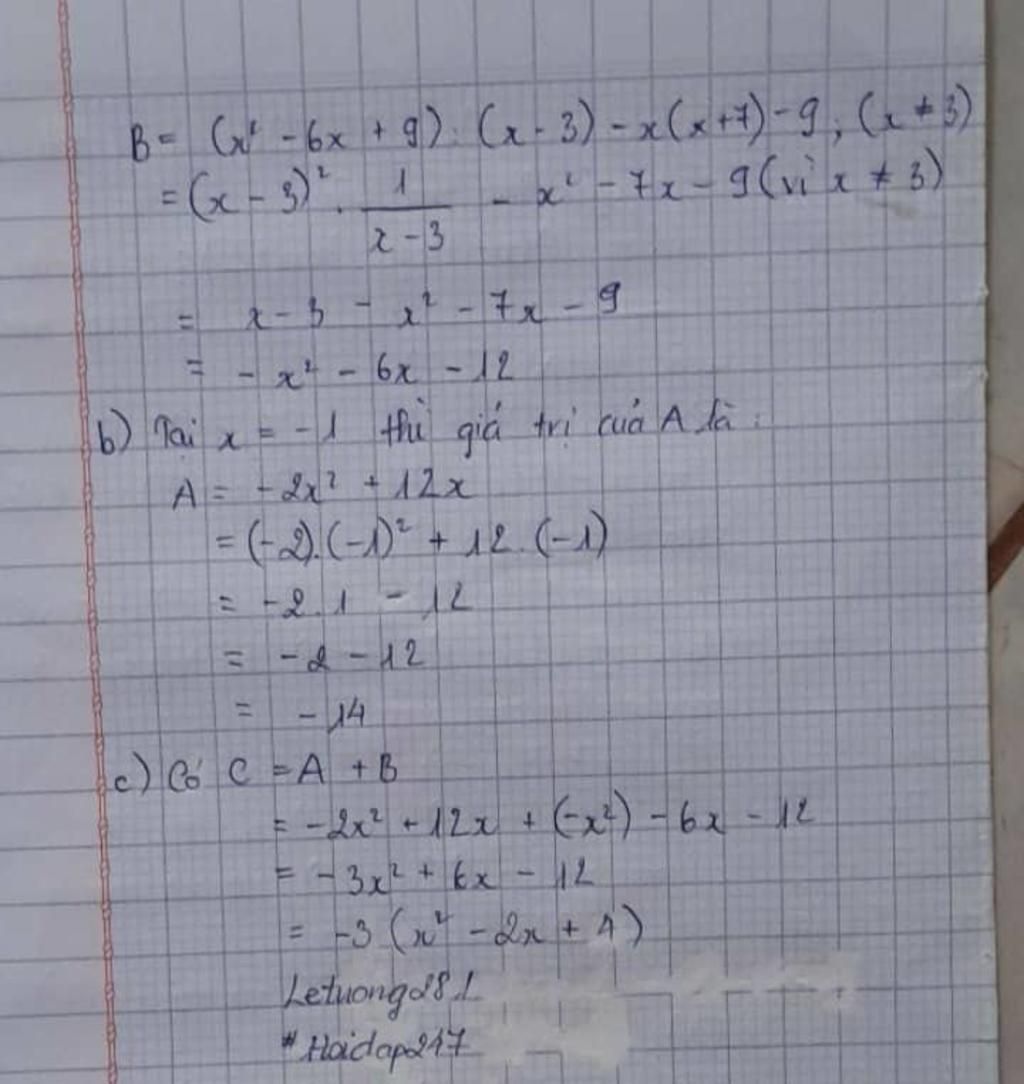 B = (x² - 6x + 9) : (x - 3) - x(x+7) - 9 ; (x ≠ 3)
= (x - 3)² . 1/(x - 3) - x² - 7x - 9 (vì x ≠ 3)
= x - 3 - x² - 7x - 9
= - x² - 6x - 12
b) Tại x = -1 thì giá trị của A là :
A = -2x² + 12x
= (-2).(-1)² + 12.(-1)
= -2.1 - 12
= -2 - 12
= -14
c) Có C = A + B
= -2x² + 12x + (-x²) - 6x - 12
= -3x² + 6x - 12
= -3 (x² - 2x + 4)
Letuong28.1
#Hoidap247